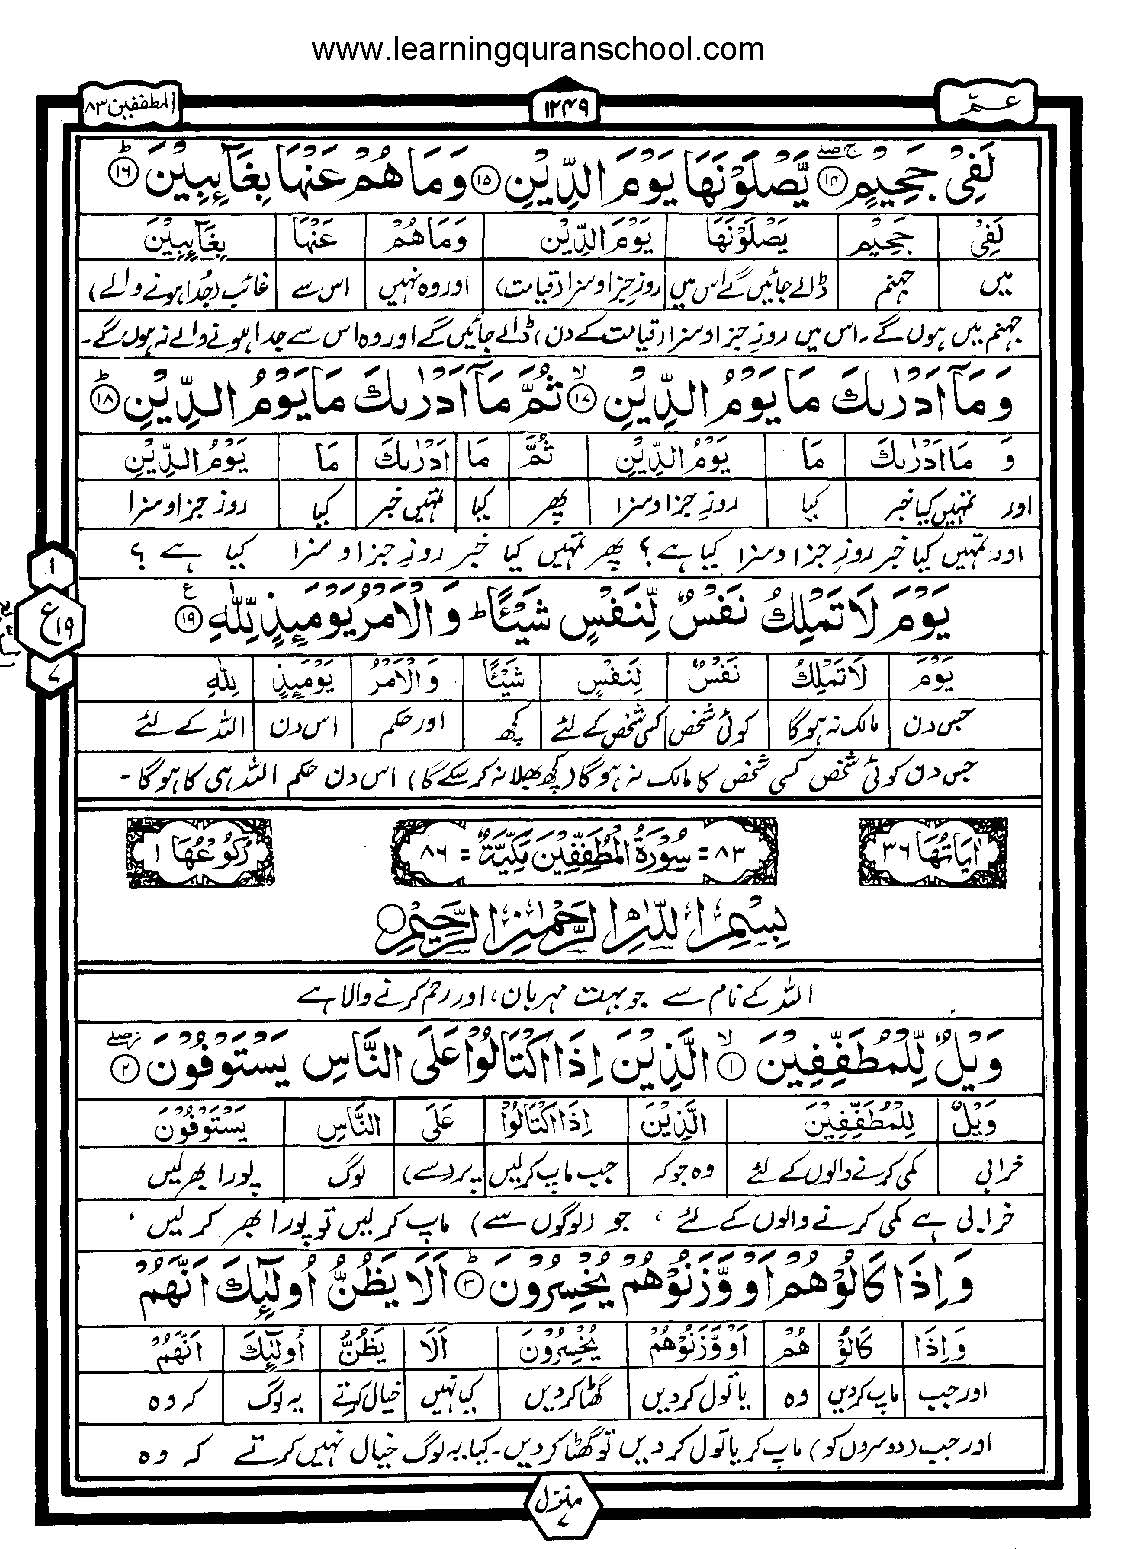 www.learningquranschool.com
عمّ ۱۲۴۹ المطففین ۸۳
لَفِیْ جَحِیْمٍ ۝۱۴ یَّصْلَوْنَهَا یَوْمَ الدِّیْنِ ۝۱۵ وَمَا هُمْ عَنْهَا بِغَآئِبِیْنَ ۝۱۶ؕ
لَفِیْ جَحِیْمٍ یَصْلَوْنَهَا یَوْمَ الدِّیْنِ وَمَا هُمْ عَنْهَا بِغَآئِبِیْنَ
میں جہنم ڈالے جائیں گے اس میں روزِ جزا و سزا (قیامت) اور وہ نہیں اس سے غائب (جدا ہونے والے)
جہنم میں ہوں گے۔ اس میں روزِ جزا و سزا (قیامت کے دن) ڈالے جائیں گے اور وہ اس سے جدا ہونے والے نہ ہوں گے۔
وَمَآ اَدْرٰىكَ مَا یَوْمُ الدِّیْنِ ۝۱۷ۙ ثُمَّ مَآ اَدْرٰىكَ مَا یَوْمُ الدِّیْنِ ۝۱۸ؕ
وَ مَا اَدْرٰىكَ مَا یَوْمُ الدِّیْنِ ثُمَّ مَا اَدْرٰىكَ مَا یَوْمُ الدِّیْنِ
اور تمہیں کیا خبر کیا روزِ جزا و سزا پھر کیا تمہیں خبر کیا روزِ جزا و سزا
اور تمہیں کیا خبر روزِ جزا و سزا کیا ہے؟ پھر تمہیں کیا خبر روزِ جزا و سزا کیا ہے؟
۱
ع ۱۹
۷
یَوْمَ لَا تَمْلِكُ نَفْسٌ لِّنَفْسٍ شَیْئًا ؕ وَالْاَمْرُ یَوْمَئِذٍ لِّلّٰهِ ۝۱۹ع
یَوْمَ لَا تَمْلِكُ نَفْسٌ لِنَفْسٍ شَیْئًا وَالْاَمْرُ یَوْمَئِذٍ لِلّٰهِ
جس دن مالک نہ ہوگا کوئی شخص کسی شخص کے لئے کچھ اور حکم اس دن اللہ کے لئے
جس دن کوئی شخص کسی شخص کا مالک نہ ہوگا (کچھ بھلا نہ کر سکے گا) اس دن حکم اللہ ہی کا ہوگا۔
اٰیَاتُهَا ۳۶ ۸۳= سُوْرَةُ الْمُطَفِّفِیْنَ مَكِّیَّةٌ =۸۶ رُكُوْعُهَا ۱
بِسْمِ اللّٰهِ الرَّحْمٰنِ الرَّحِیْمِ
اللہ کے نام سے جو بہت مہربان، اور رحم کرنے والا ہے
وَیْلٌ لِّلْمُطَفِّفِیْنَ ۝۱ۙ الَّذِیْنَ اِذَا اكْتَالُوْا عَلَی النَّاسِ یَسْتَوْفُوْنَ ۝۲
وَیْلٌ لِلْمُطَفِّفِیْنَ الَّذِیْنَ اِذَا اكْتَالُوْا عَلَی النَّاسِ یَسْتَوْفُوْنَ
خرابی کمی کرنے والوں کے لئے وہ جو کہ جب ماپ کر لیں پر (سے) لوگ پورا بھر لیں
خرابی ہے کمی کرنے والوں کے لئے، جو (لوگوں سے) ماپ کر لیں تو پورا بھر کر لیں،
وَاِذَا كَالُوْهُمْ اَوْ وَّزَنُوْهُمْ یُخْسِرُوْنَ ۝۳ؕ اَلَا یَظُنُّ اُولٰٓئِكَ اَنَّهُمْ
وَاِذَا كَالُوْ هُمْ اَوْ وَّزَنُوْهُمْ یُخْسِرُوْنَ اَلَا یَظُنُّ اُولٰٓئِكَ اَنَّهُمْ
اور جب ماپ کر دیں وہ یا تول کر دیں گھٹا کر دیں کیا نہیں خیال کرتے یہ لوگ کہ وہ
اور جب (دوسروں کو) ماپ کر یا تول کر دیں تو گھٹا کر دیں۔ کیا یہ لوگ خیال نہیں کرتے کہ وہ
منزل ۷